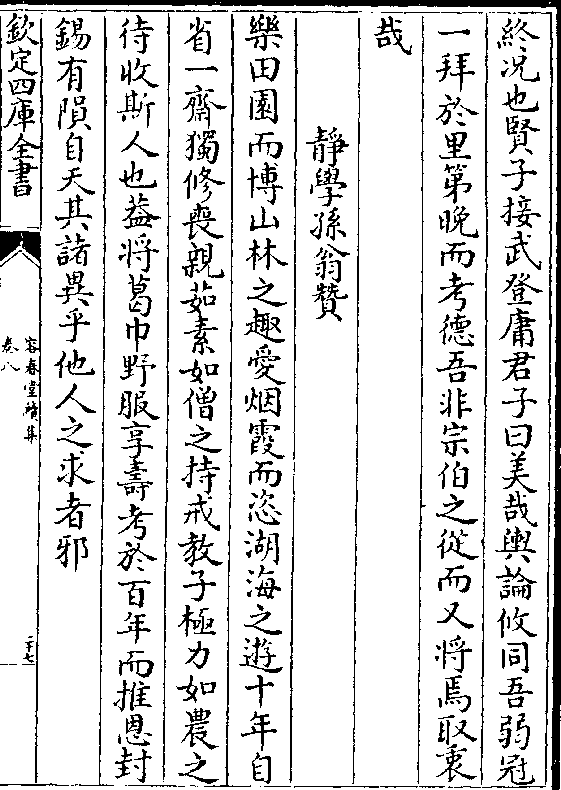 終况也賢子接武登庸君子曰美哉輿論攸同吾弱冠
一拜於里第晚而考德吾非宗伯之從而又將焉取衷
哉
靜學孫翁贊
樂田園而博山林之趣愛烟霞而恣湖海之遊十年自
省一齋獨修喪親茹素如僧之持戒教子極力如農之
待收斯人也葢將葛巾野服享壽考於百年而推恩封
錫有隕自天其諸異乎他人之求者邪
欽定四庫全書
容春堂續集
卷八
二十七